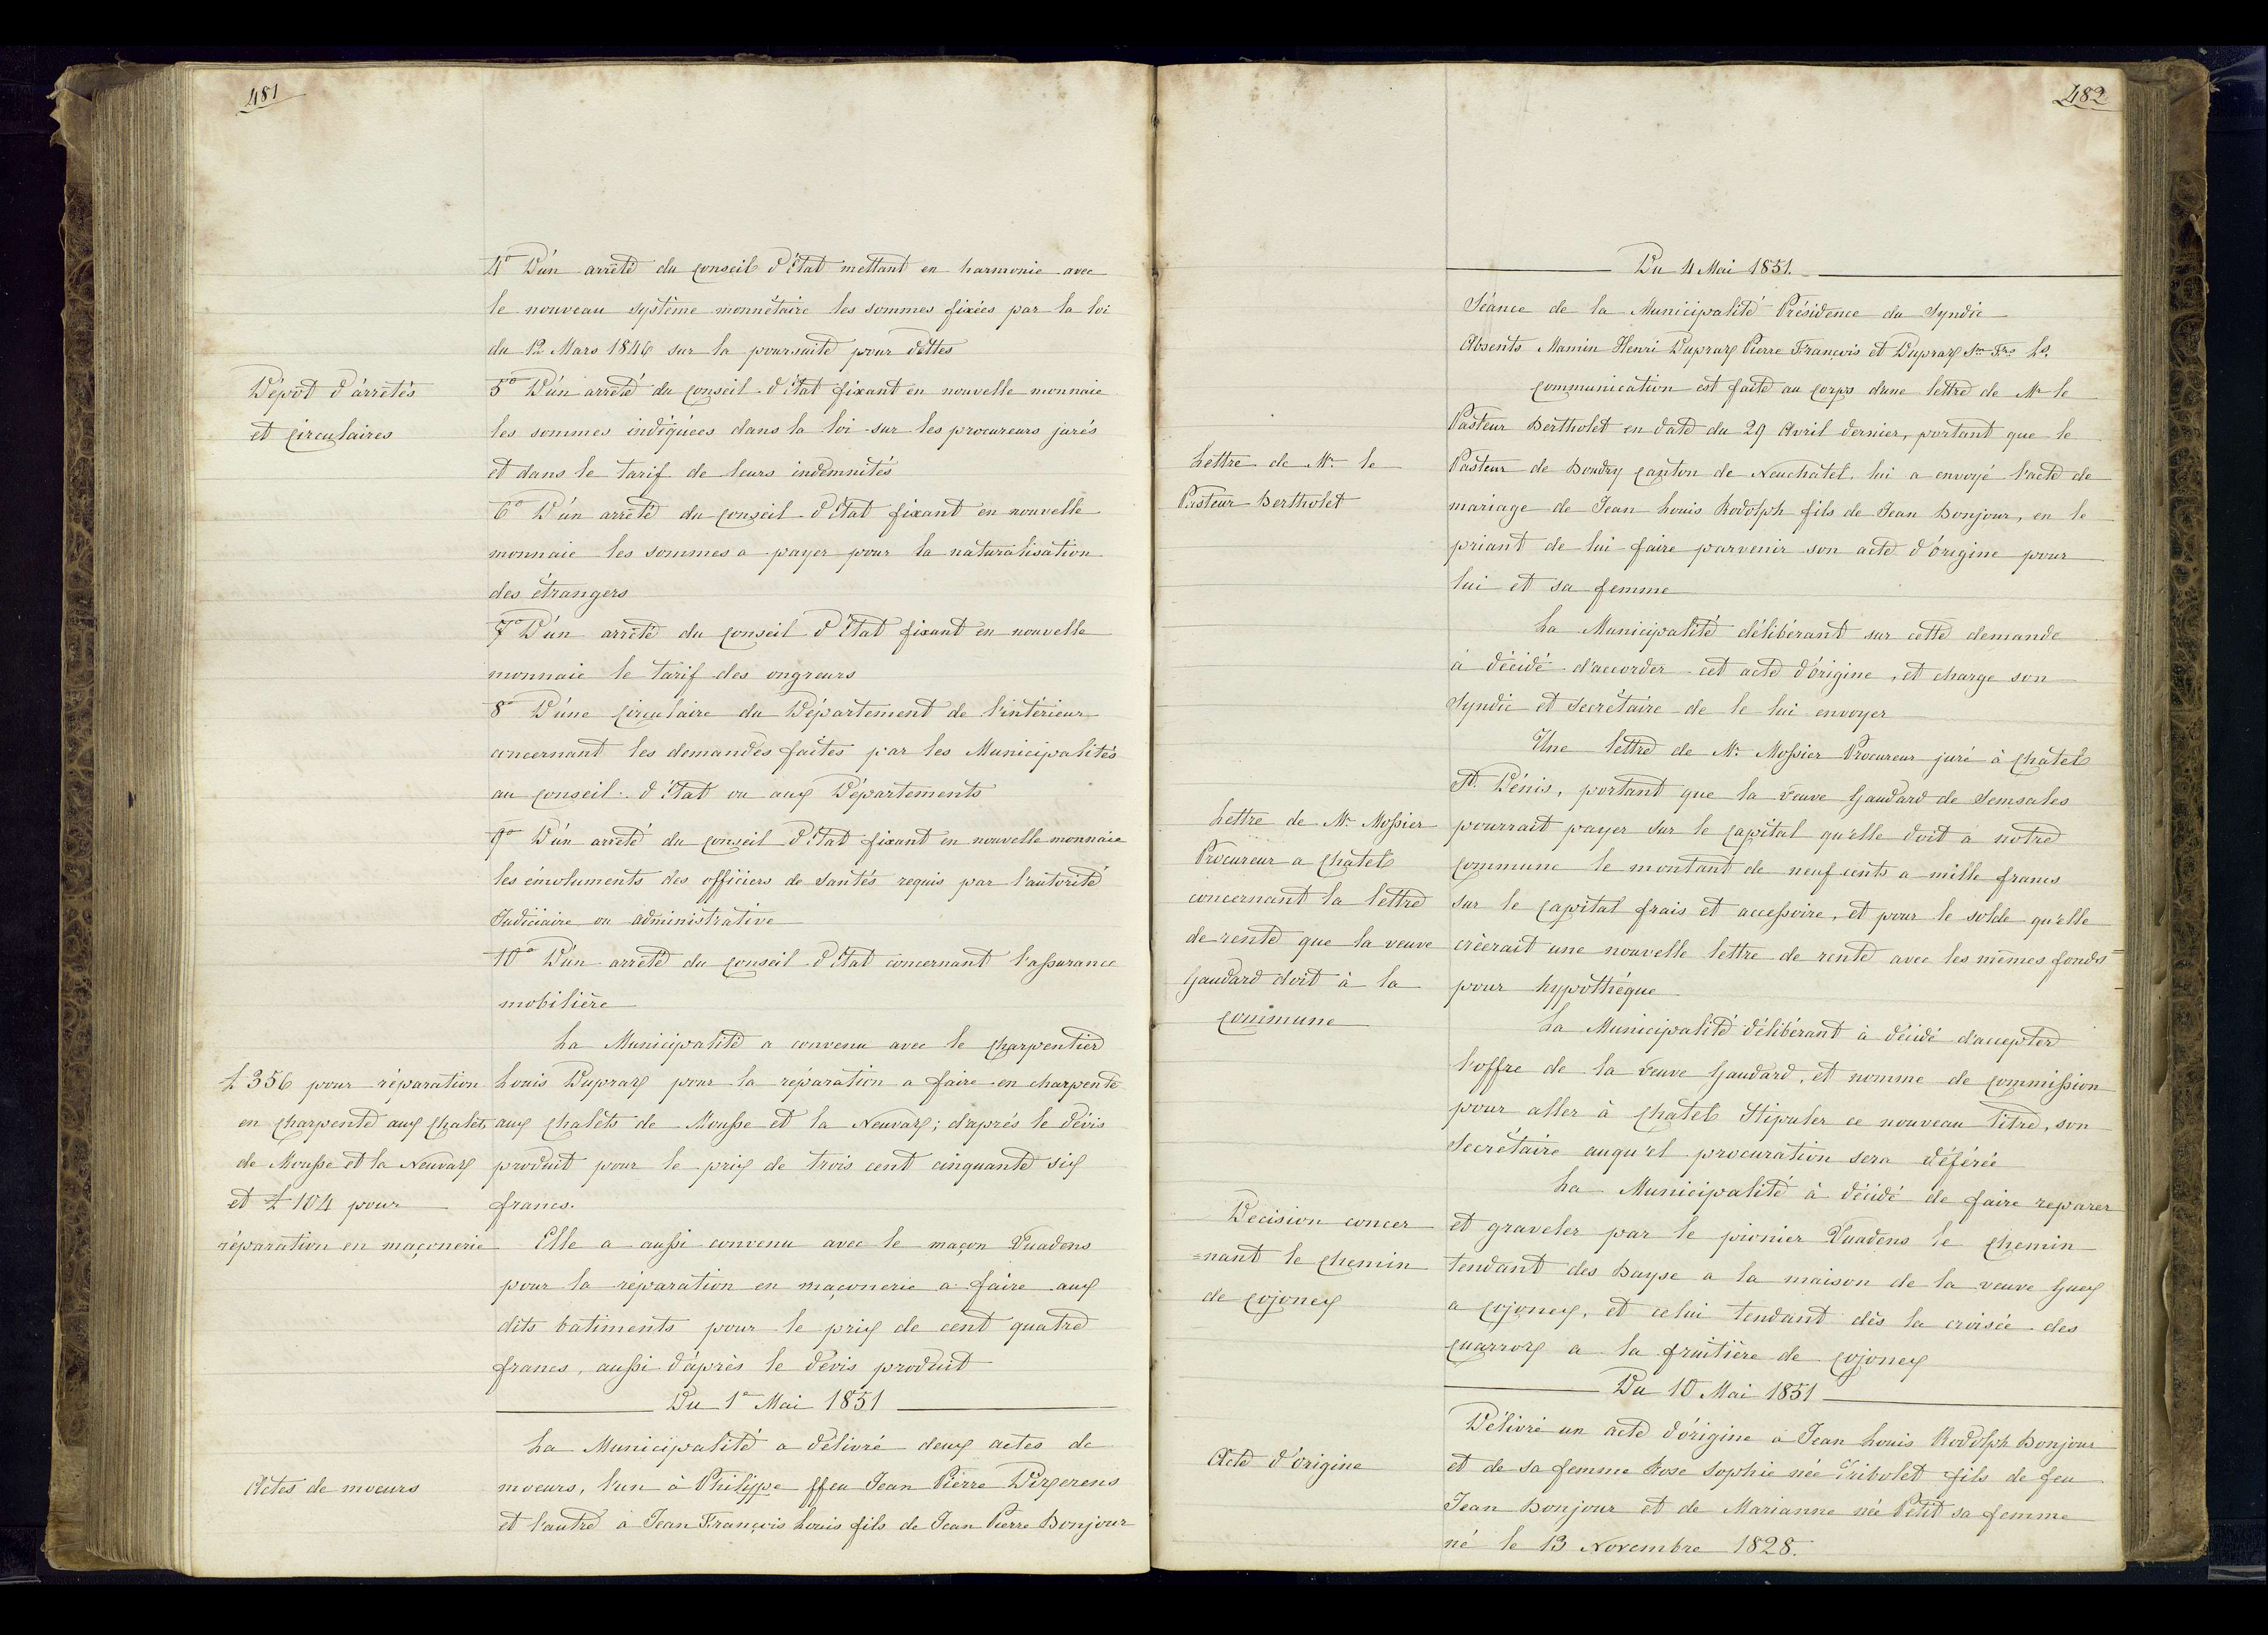 481
4° D'un arrêté du Conseil d'État mettant en harmonie avec
le nouveau système monnétaire les sommes fixées par la loi
du 12 Mars 1846 sur la poursuite pour dettes
Dépôt d'arrêtés
et Circulaires
5° D'un arrêté du Conseil d'État fixant en nouvelle monnaie
les sommes indiquées dans la loi sur les procureurs jurés
et dans le tarif de leurs indemnités
6° D'un arrêté du Conseil d'État fixant en nouvelle
monnaie les sommes a payer pour la naturalisation
des étrangers
7° D'un arrêté du Conseil d'État fixant en nouvelle
monnaie le tarif des ongreurs
8° D'une Circulaire du Département de l'intérieur
concernant les demandes faites par les Municipalités
au Conseil d'État ou aux Départements
9° D'un arrêté du Conseil d'État fixant en nouvelle monnaie
les émoluments des officiers de Santés requis par l'autorité
Judiciaire ou administrative
10° D'un arrêté du Conseil d'État concernant l'assurance
mobilière
La Municipalité a convenu avec le Charpentier
£ 356 pour réparation
en Charpente aux Chalêts
de Mousse et la Neuvaz
et £ 104 pour
réparation en maçonerie
Louis Dupraz pour la réparation a faire en charpente
aux Chalêts de Mousse et la Neuvaz; d'après le dévis
produit pour le prix de trois cent cinquante six
francs.
Elle a aussi convenu avec le maçon Vuadens
pour la réparation en maçonerie a faire aux
dits batiments pour le prix de cent quatre
francs, aussi d'après le dévis produit
Du 1er Mai 1851
La Municipalité a délivré deux actes de
Actes de moeurs
moeurs, l'un à Philippe ffeu Jean Pierre
et l'autre à Jean François Louis fils de Jean Pierre Bonjour
482
Du 4 Mai 1851.
Séance de la Municipalité Présidence du Syndic
Absents Mamin Henri Dupraz Pierre François et Dupraz Jn Frs Ls.
Communication est faite au Corps d'une lettre de Mr le
Lettre de Mr. le
Pasteur Bertholet
Pasteur Bertholet en date du 29 Avril dernier, portant que le
Pasteur de Boudry Canton de Neuchatel, lui a envoyé l'acte de
mariage de Jean Louis Rodolph fils de Jean Bonjour, en le
priant de lui faire parvenir son acte d'origine pour
lui et sa femme
La Municipalité délibérant sur cette demande
à décidé d'accorder cet acte d'origine, et charge son
Syndic et Secrétaire de le lui envoyer
Une lettre de Mr. Mossier Procureur juré à Chatel
St. Dénis, portant que la Veuve Gaudard de Semsales
Lettre de Mr. Mossier
Procureur a Chatel
concernant la lettre
de rente que la veuve
Gaudard doit à la
Commune
pourrait payer sur le Capital qu'elle doit a notre
Commune le montant de neuf cents a mille francs
sur le Capital frais et accessoire, et pour le solde qu'elle
créerait une nouvelle lettre de rente avec les mêmes fonds
pour hypothéque
La Municipalité délibérant à décidé d'accepter
l'offre de la Veuve Gaudard, et nomme de Commission
pour aller à Chatel Stipuler ce nouveau titre, son
Secrétaire auqu'el procuration sera déférée
La Municipalité à décidé de faire reparer
Decision concer
=nant le Chemin
de Cojonex
et graveler par le pionier Vuadens le Chemin
tendant des Bayse a la maison de la veuve Guex
a Cojonex, et celui tendant dès la croisée des
Quarroz a la fruitière de Cojonex
Du 10 Mai 1851
Acte d'origine
Délivré un acte d'origine à Jean Louis Rodolph Bonjour
et de sa femme Rose Sophie née Tribolet fils de feu
Jean Bonjour et de Marianne née Petit sa femme
né le 13 Novembre 1828.